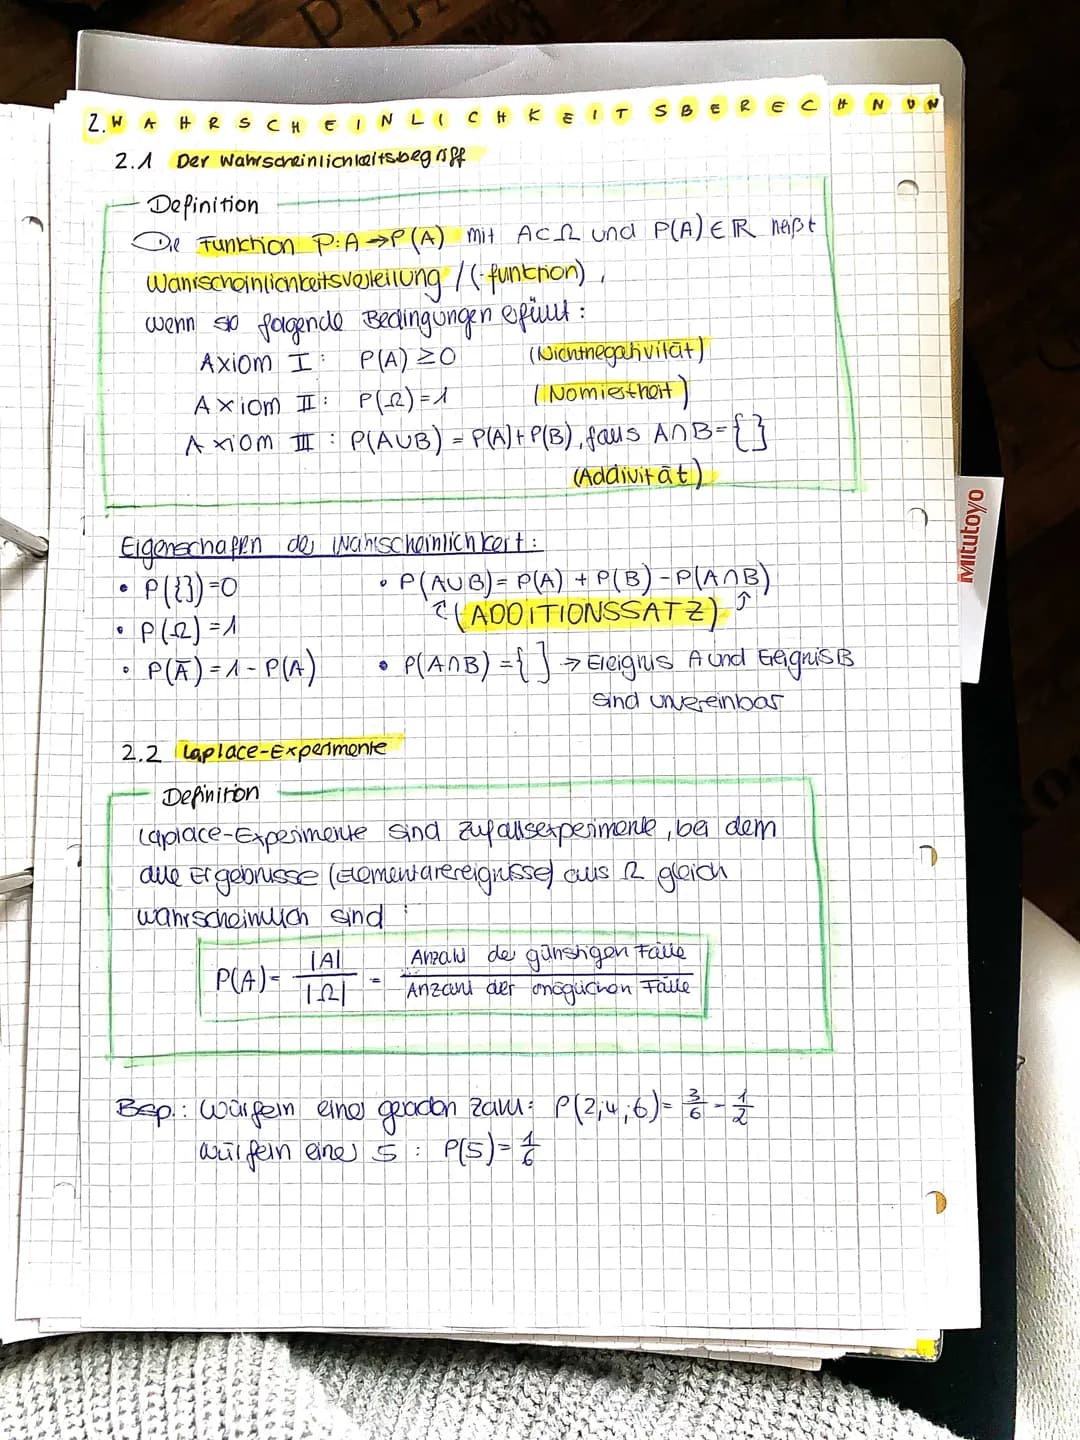 2. WAHRSCHEINLICHKEITSBERECHNUN
2.1 Der Wahrscheinlichkeitsbegriff
Definition
Die Funktion P: A → P(A) mit A⊂Ω und P(A) ∈ ℝ heißt
Wahrscheinlichkeitsverteilung / (-funktion),
wenn sie folgende Bedingungen erfüllt:
Axiom I: P(A) ≥ 0 (Nichtnegativität)
Axiom II: P(Ω) = 1 (Normiertheit)
Axiom III: P(A∪B) = P(A) + P(B), falls A∩B = { }
(Addivität)
Eigenschaften der Wahrscheinlichkeit:
• P({}) = 0 • P(A∪B) = P(A) + P(B) - P(A∩B)
(ADDITIONSSATZ)
• P(Ω) = 1
• P(Ā) = 1 - P(A) • P(A∩B) = { } → Ereignis A und Ereignis B
sind unvereinbar
2.2 Laplace-Experimente
Definition
Laplace-Experimente sind Zufallsexperimente, bei dem
alle Ergebnisse (Elementarereignisse) aus Ω gleich
wahrscheinlich sind :
P(A) = |A| / |Ω| = Anzahl der günstigen Fälle / Anzahl der möglichen Fälle
Bsp.: Würfeln einer geraden Zahl: P(2;4;6) = 3/6 - 1/2
Würfeln einer 5 : P(5) = 1/6
Mitutoyo